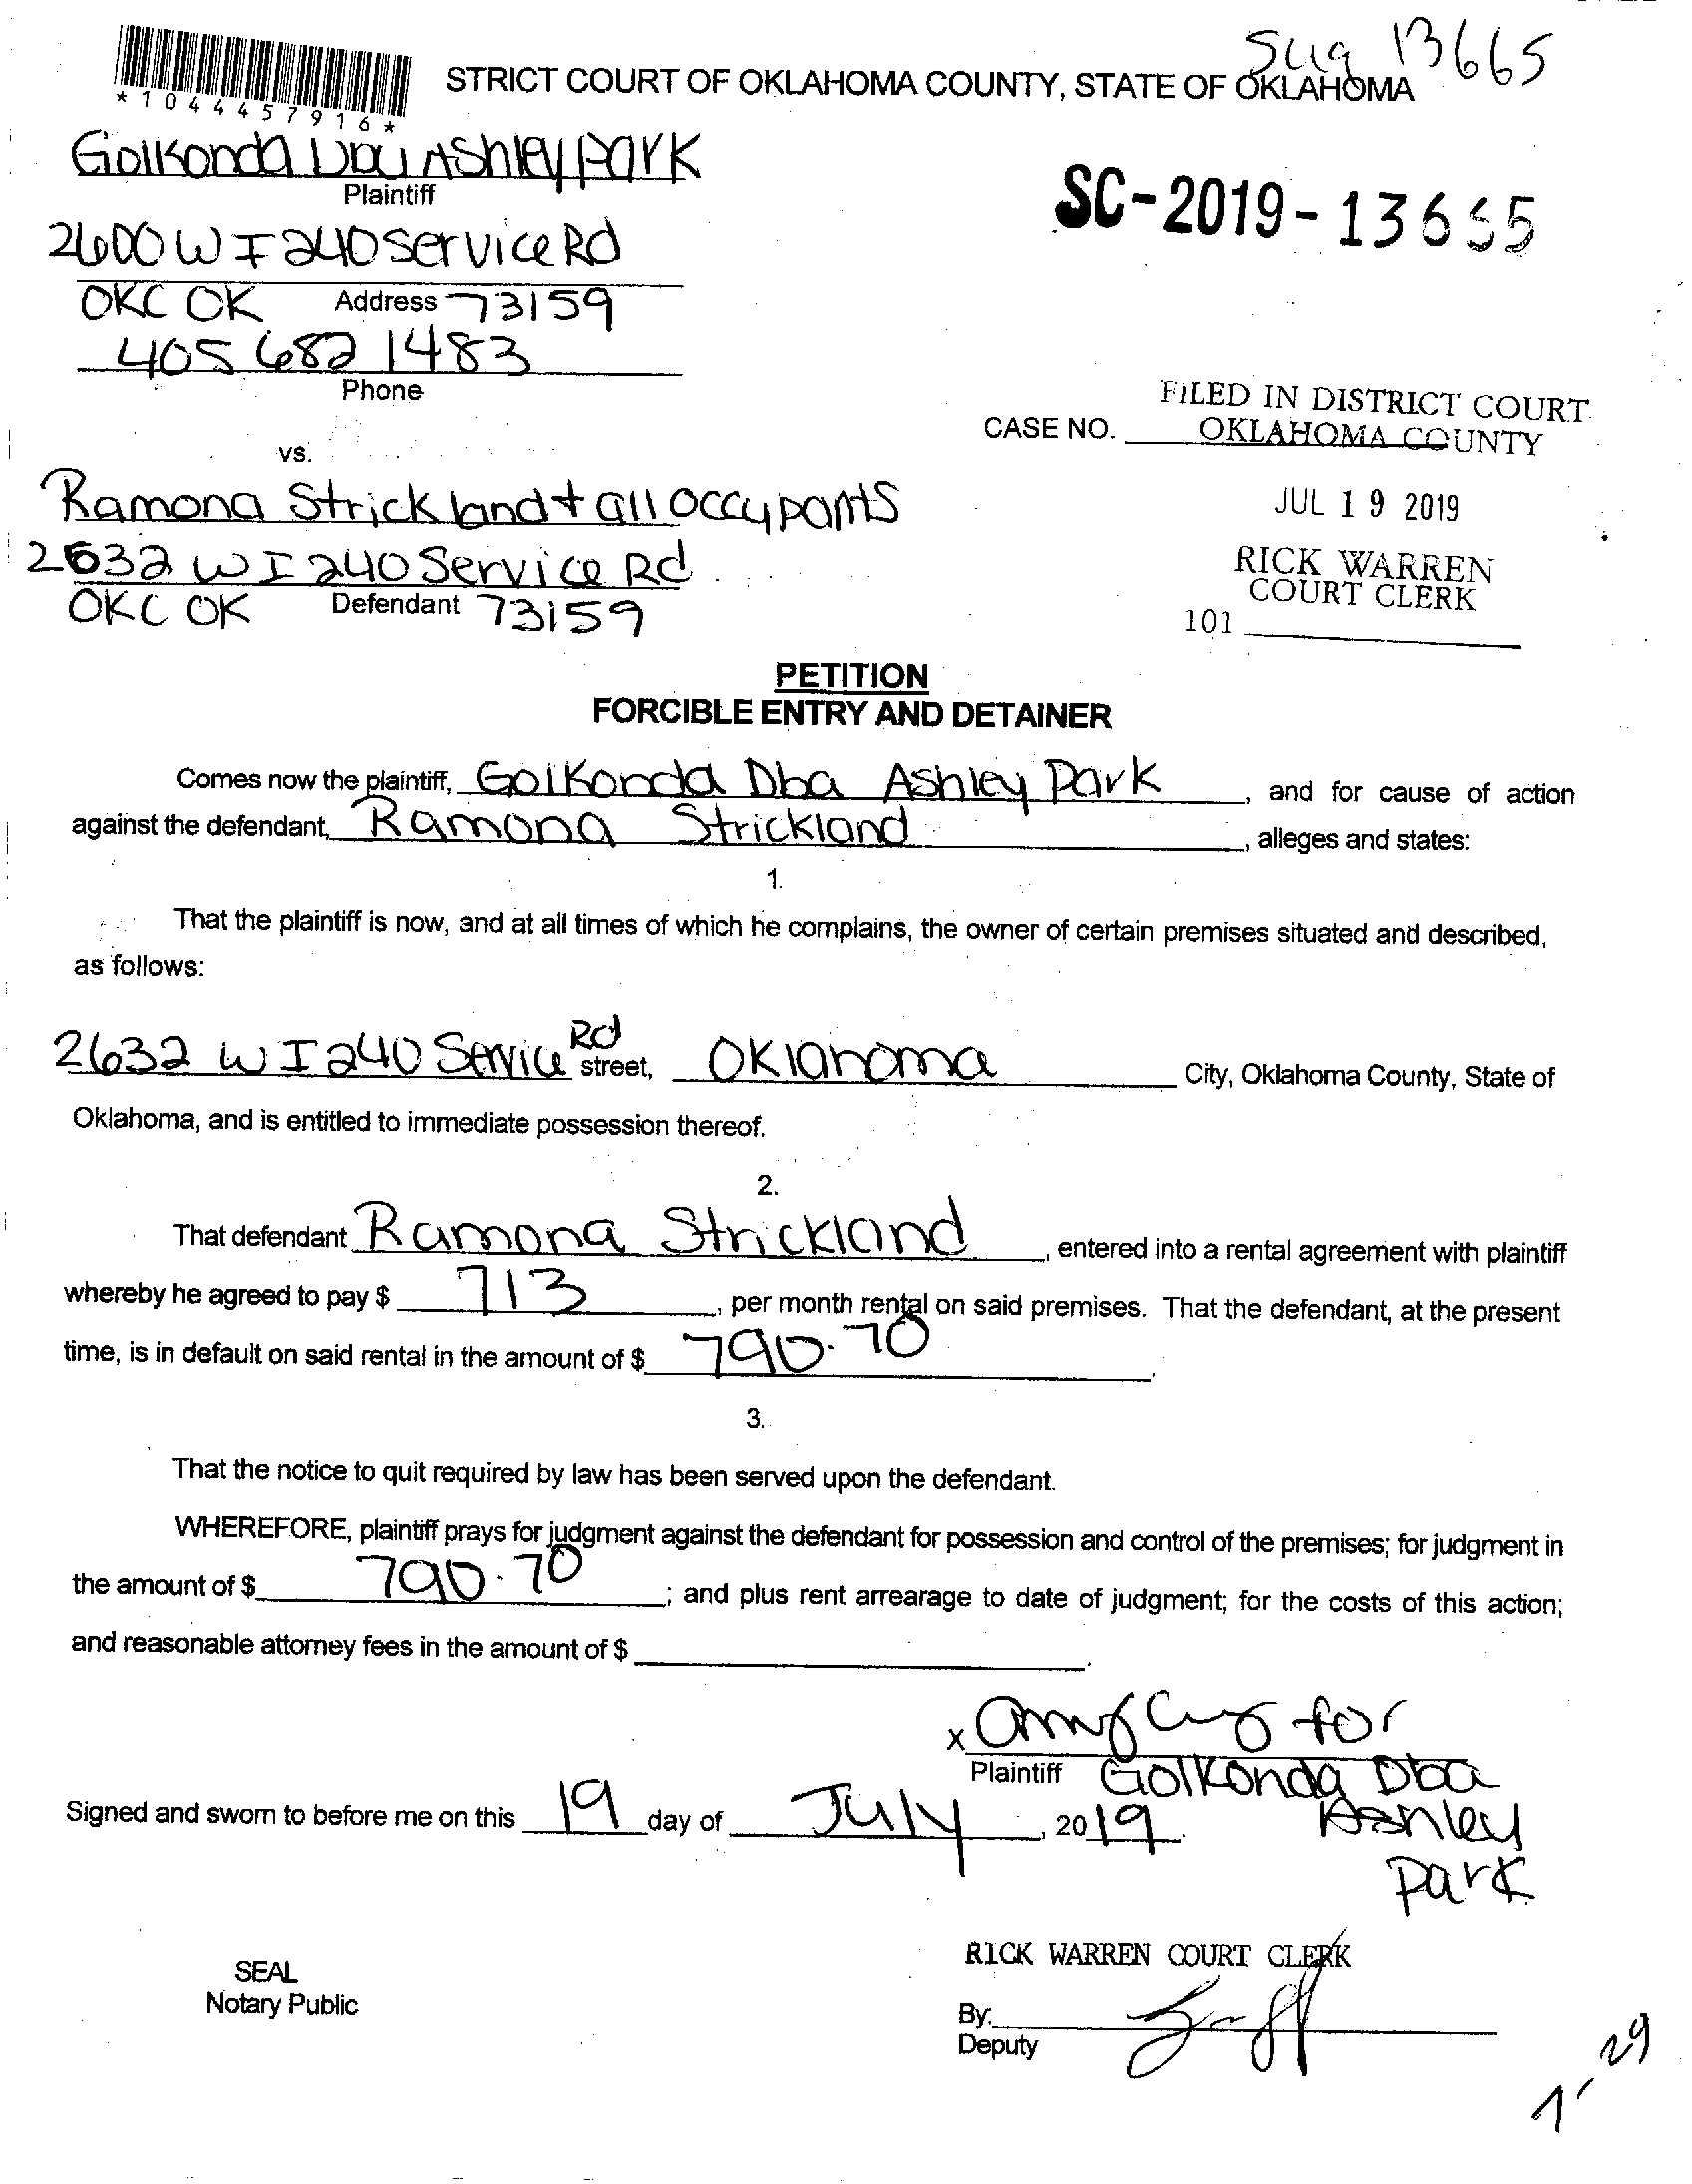 Sug 13665
*1044457916*
STRICT COURT OF OKLAHOMA COUNTY, STATE OF OKLAHOMA
Golkonda Dba Ashley Park
Plaintiff
SC-2019-13665
2600 W I 240 Service Rd
OKC OK Address 73159
405 682 1483
Phone
FILED IN DISTRICT COURT
CASE NO. OKLAHOMA COUNTY
vs.
Ramona Strickland + all occupants
JUL 19 2019
2632 W I 240 Service Rd
RICK WARREN
COURT CLERK
OKC OK Defendant 73159
101
PETITION
FORCIBLE ENTRY AND DETAINER
Comes now the plaintiff, Golkonda Dba Ashley Park, and for cause of action
against the defendant, Ramona Strickland, alleges and states:
1.
That the plaintiff is now, and at all times of which he complains, the owner of certain premises situated and described,
as follows:
2632 W I 240 Service Rd street, Oklahoma City, Oklahoma County, State of
Oklahoma, and is entitled to immediate possession thereof.
2.
That defendant Ramona Strickland, entered into a rental agreement with plaintiff
whereby he agreed to pay $ 713, per month rental on said premises. That the defendant, at the present
time, is in default on said rental in the amount of $ 790.70.
3.
That the notice to quit required by law has been served upon the defendant.
WHEREFORE, plaintiff prays for judgment against the defendant for possession and control of the premises; for judgment in
the amount of $ 790.70; and plus rent arrearage to date of judgment; for the costs of this action;
and reasonable attorney fees in the amount of $ .
x for
Plaintiff Golkonda Dba
Ashley
Park
Signed and sworn to before me on this 19 day of July, 2019.
RICK WARREN COURT CLERK
SEAL
Notary Public
By:
Deputy
29